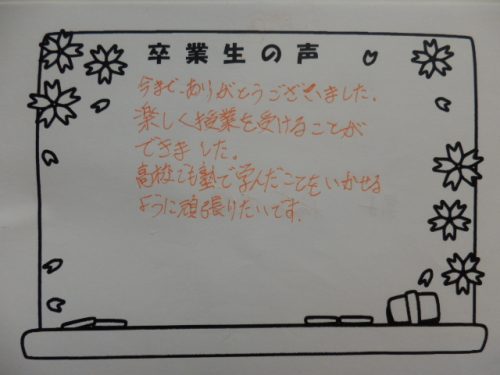 卒業生の声
今まで、ありがとうございました。
楽しく授業を受けることが
できました。
高校でも塾で学んだことをいかせる
ように頑張りたいです。